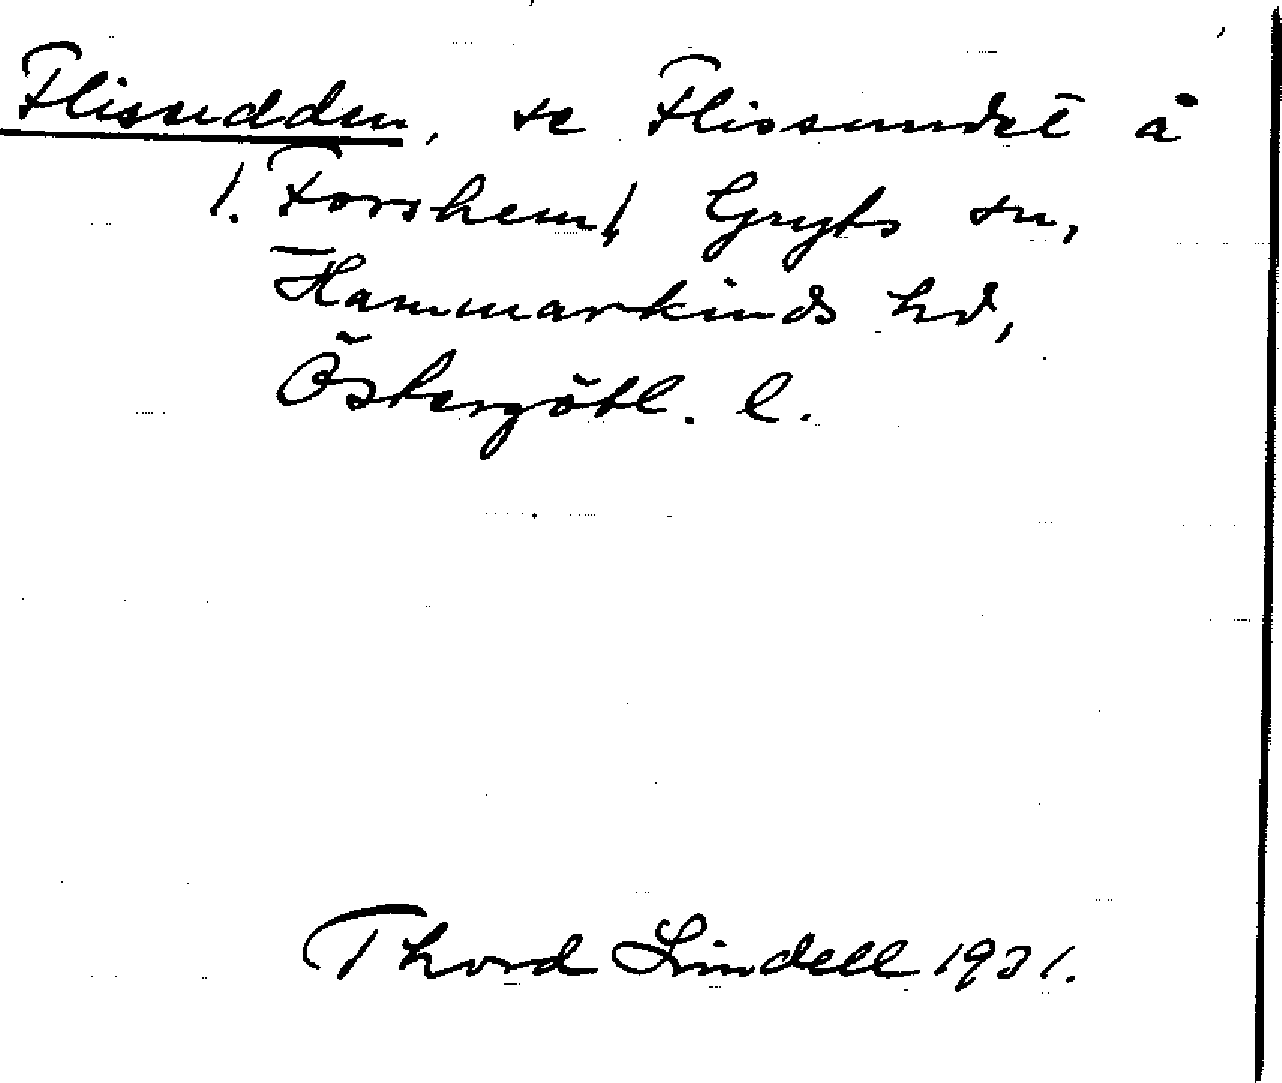 Flisudden, se Flissundet å
1. Forshem, Gryts sn,
Hammarkinds hd,
Östergötl. l.
Thord Lindell 1931.